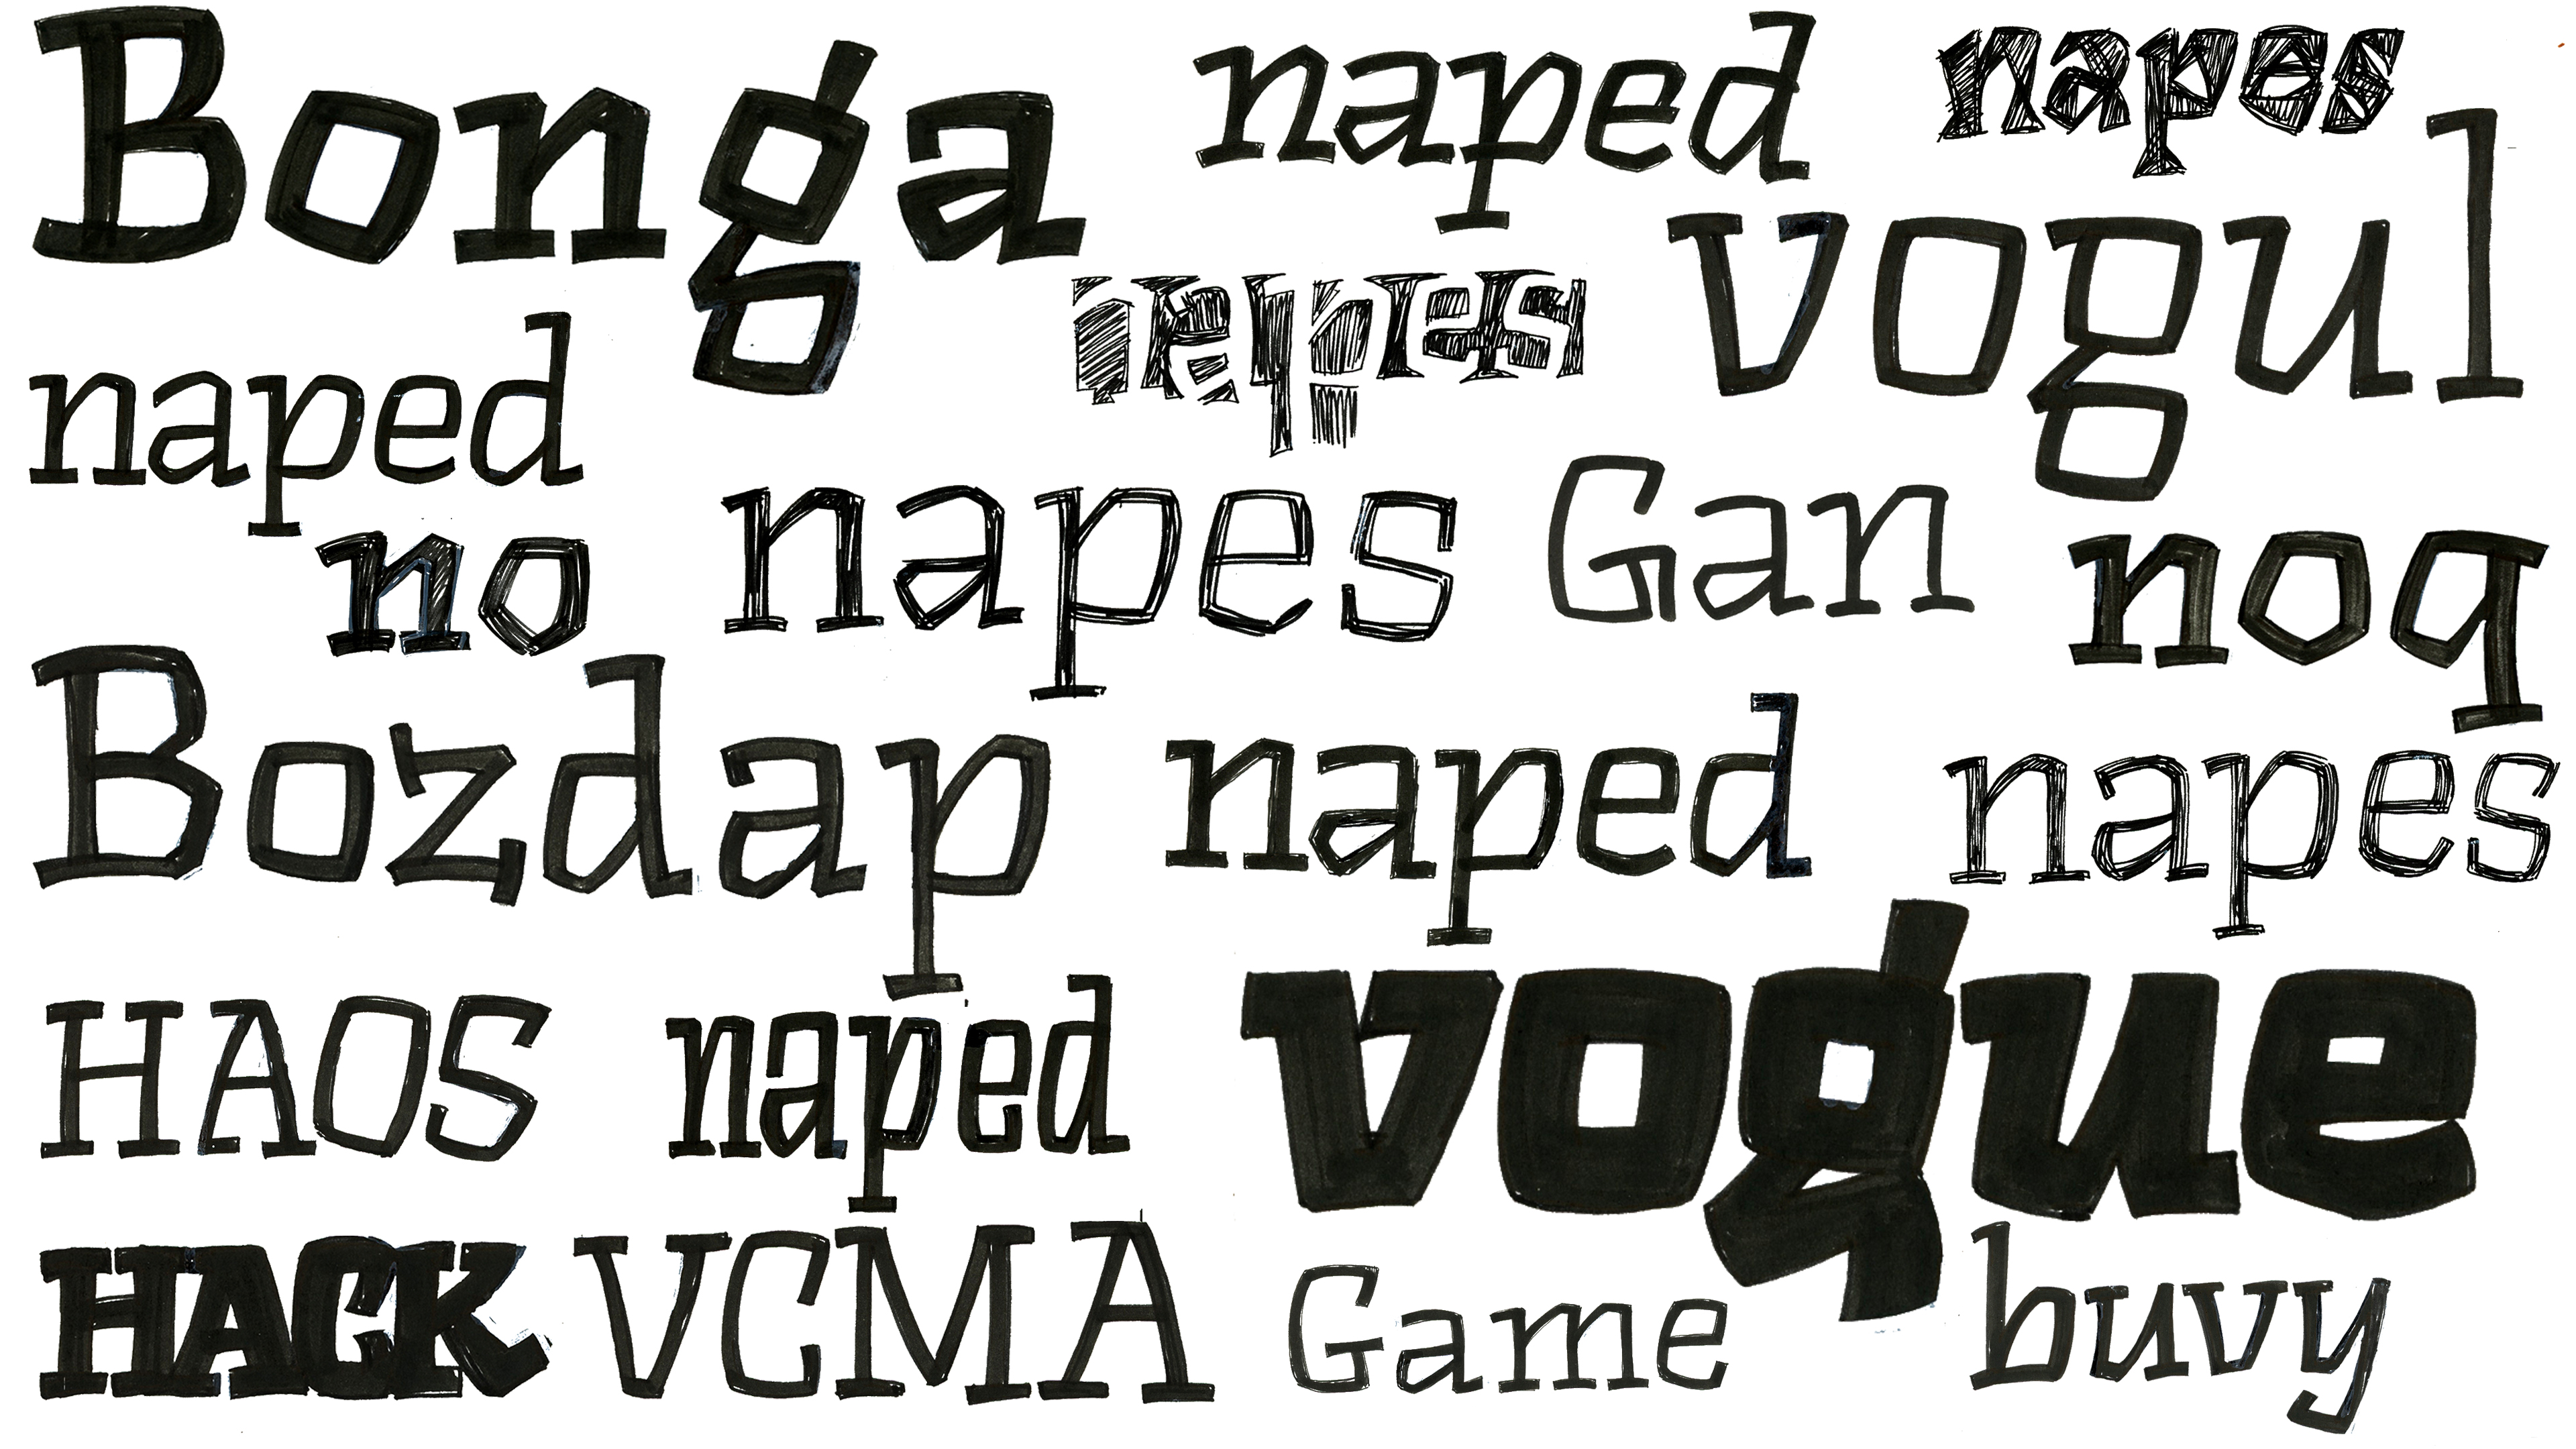 Bonga
naped
napes
Vogul
naped
napes
no
napes
Gan
noq
Bozdap
naped
napes
HAOS
naped
vogue
HACK
VCMA
Game
buvy